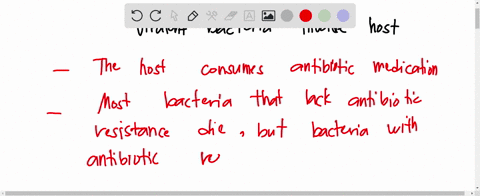 virulent bacteria invade host
— The host consumes antibiotic medication
— Most bacteria that lack antibiotic
resistance die, but bacteria with
antibiotic re